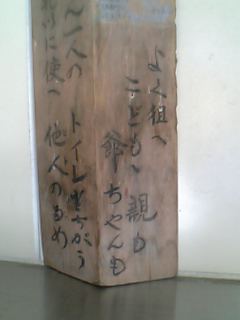 よく狙へ
子ども、親も
爺ちやんも
一人の トイレ ちがう
に使へ 他人のため